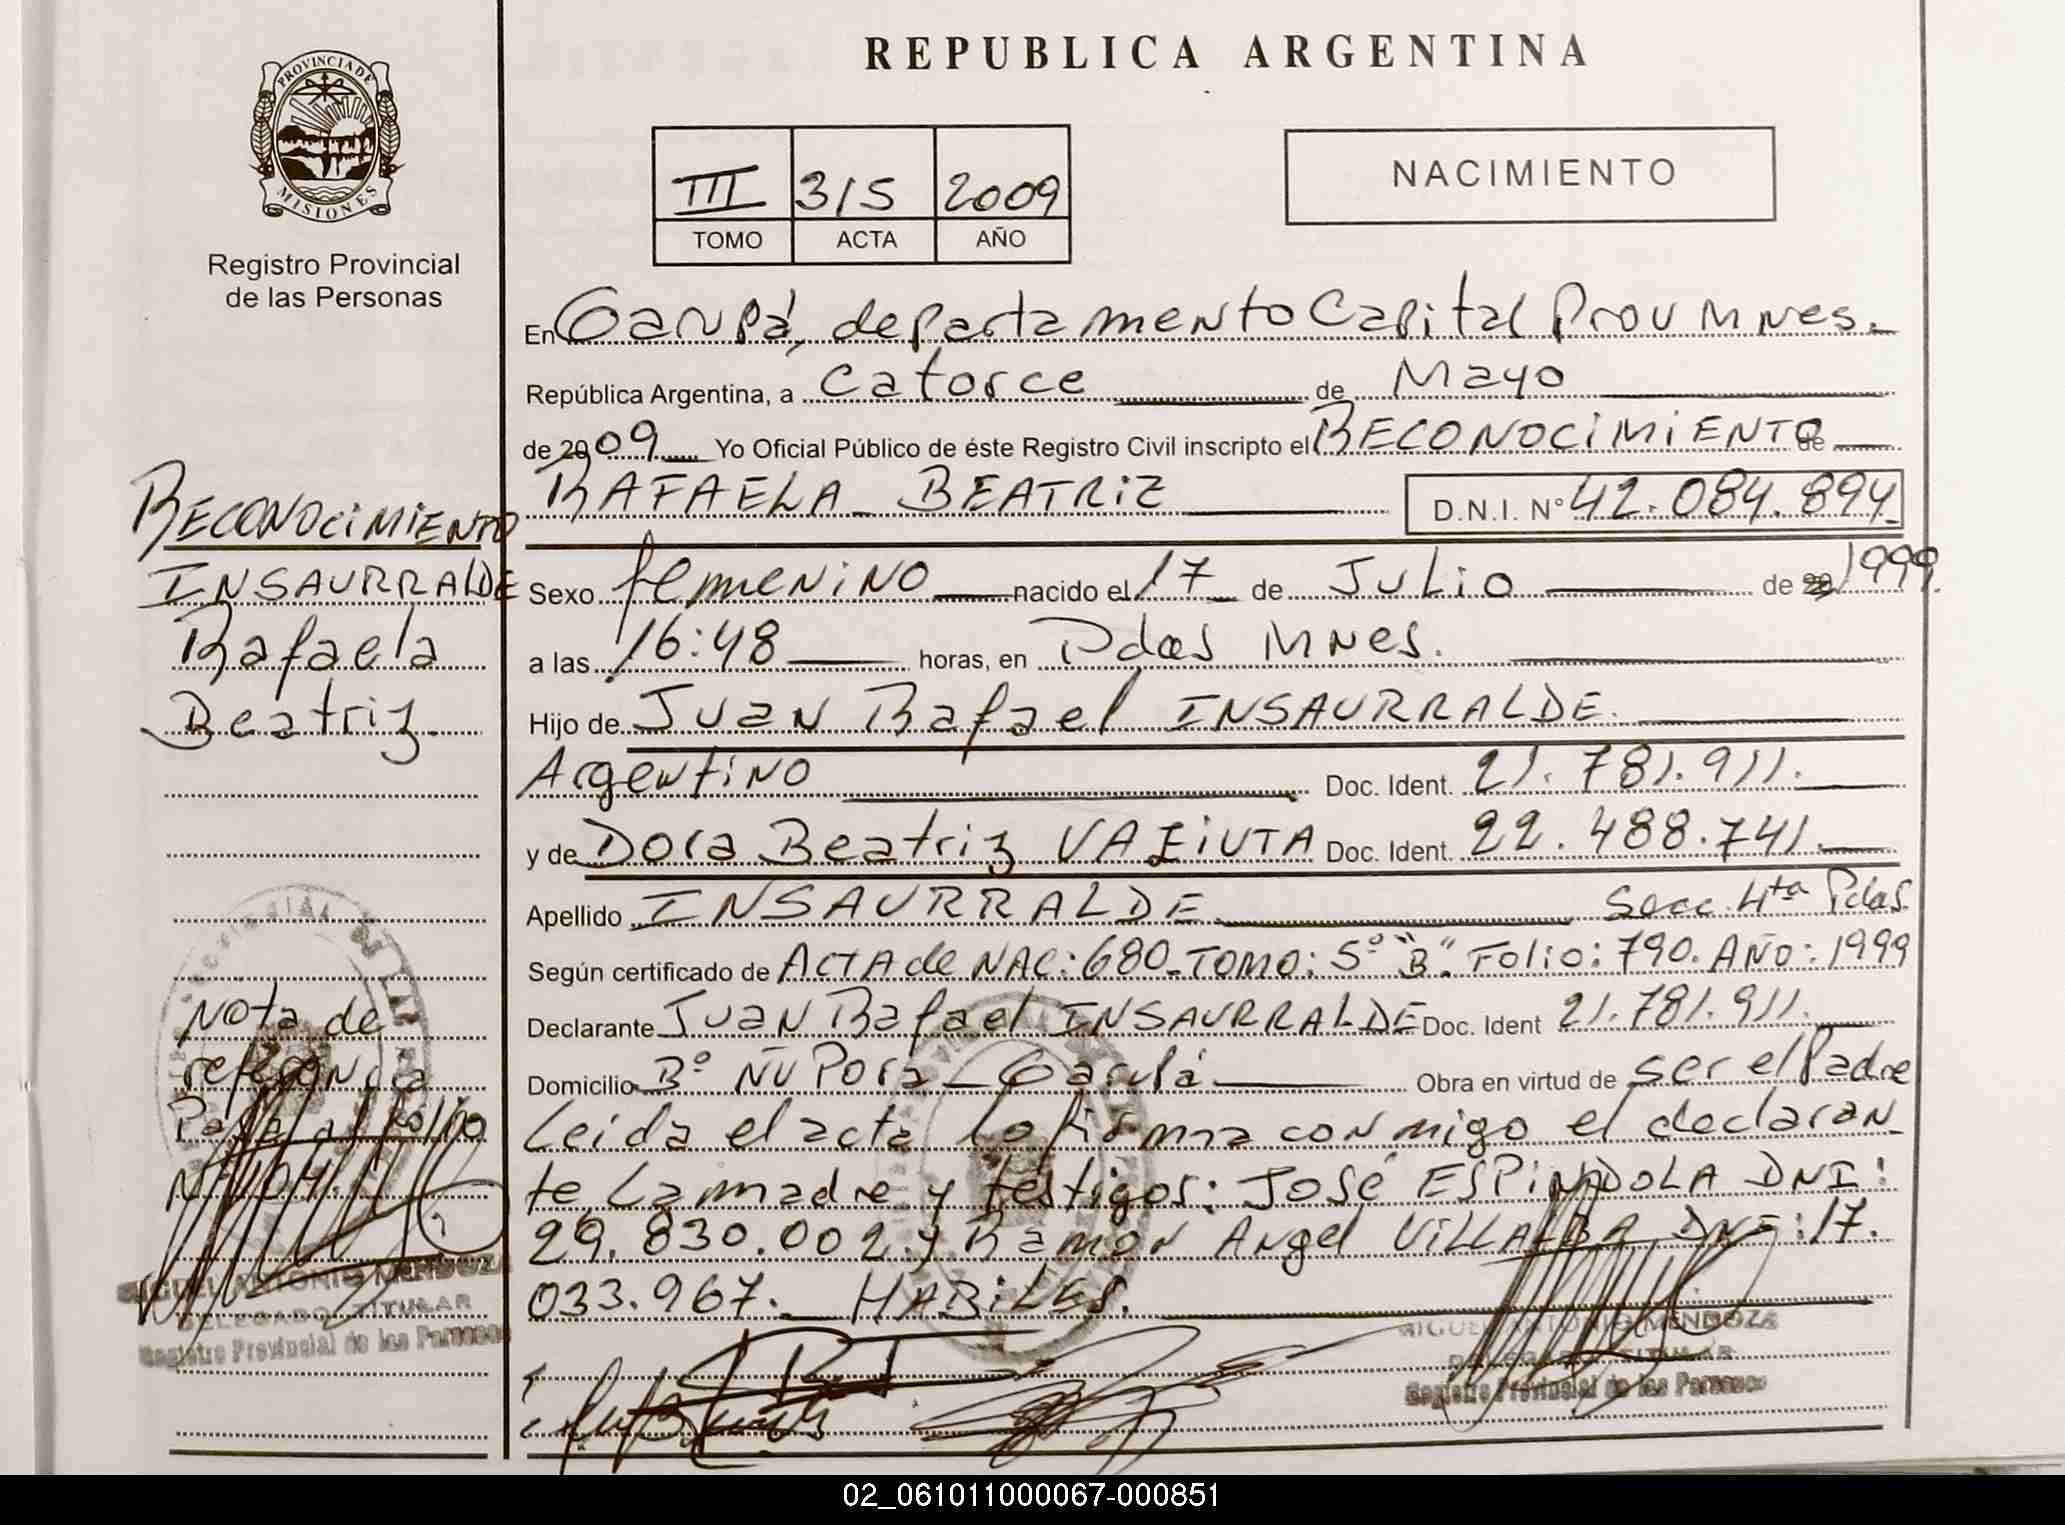 REPUBLICA ARGENTINA
PROVINCIA DE
MISIONES
Registro Provincial
de las Personas
III 315 2009
TOMO ACTA AÑO
NACIMIENTO
En Garupá, departamento Capital Prov Mnes.
República Argentina, a Catorce de Mayo
de 2009 Yo Oficial Público de éste Registro Civil inscripto el RECONOCIMIENTO de
RAFAELA BEATRIZ D.N.I. N° 42.084.894
Sexo femenino nacido el 17 de Julio de 1999.
a las 16:48 horas, en Pdas Mnes.
Hijo de Juan Rafael INSAURRALDE.
Argentino Doc. Ident. 21.781.911.
y de Dora Beatriz Doc. Ident. 22.488.741.
Apellido INSAURRALDE Secc. 4ta Pdas.
Según certificado de ACTA de NAC: 680. TOMO: 5° "B". Folio: 790. AÑO: 1999
Declarante Juan Rafael INSAURRALDE Doc. Ident 21.781.911.
Domicilio B° ÑU Pora - Garupá Obra en virtud de ser el Padre
Leida el acta la firma conmigo el declaran
te La madre y testigos: José ESPINDOLA DNI:
29.830.002 y Ramón Angel VILLALBA DNI: 17.
033.967. HABILES.
MIGUEL ANTONIO MENDOZA
DELEGADO TITULAR
Registro Provincial de las Personas
RECONOCIMIENTO
INSAURRALDE
Rafaela
Beatriz
Nota de
referencia
Pasa al folio
MIGUEL ANTONIO MENDOZA
DELEGADO TITULAR
Registro Provincial de las Personas
02_061011000067-000851